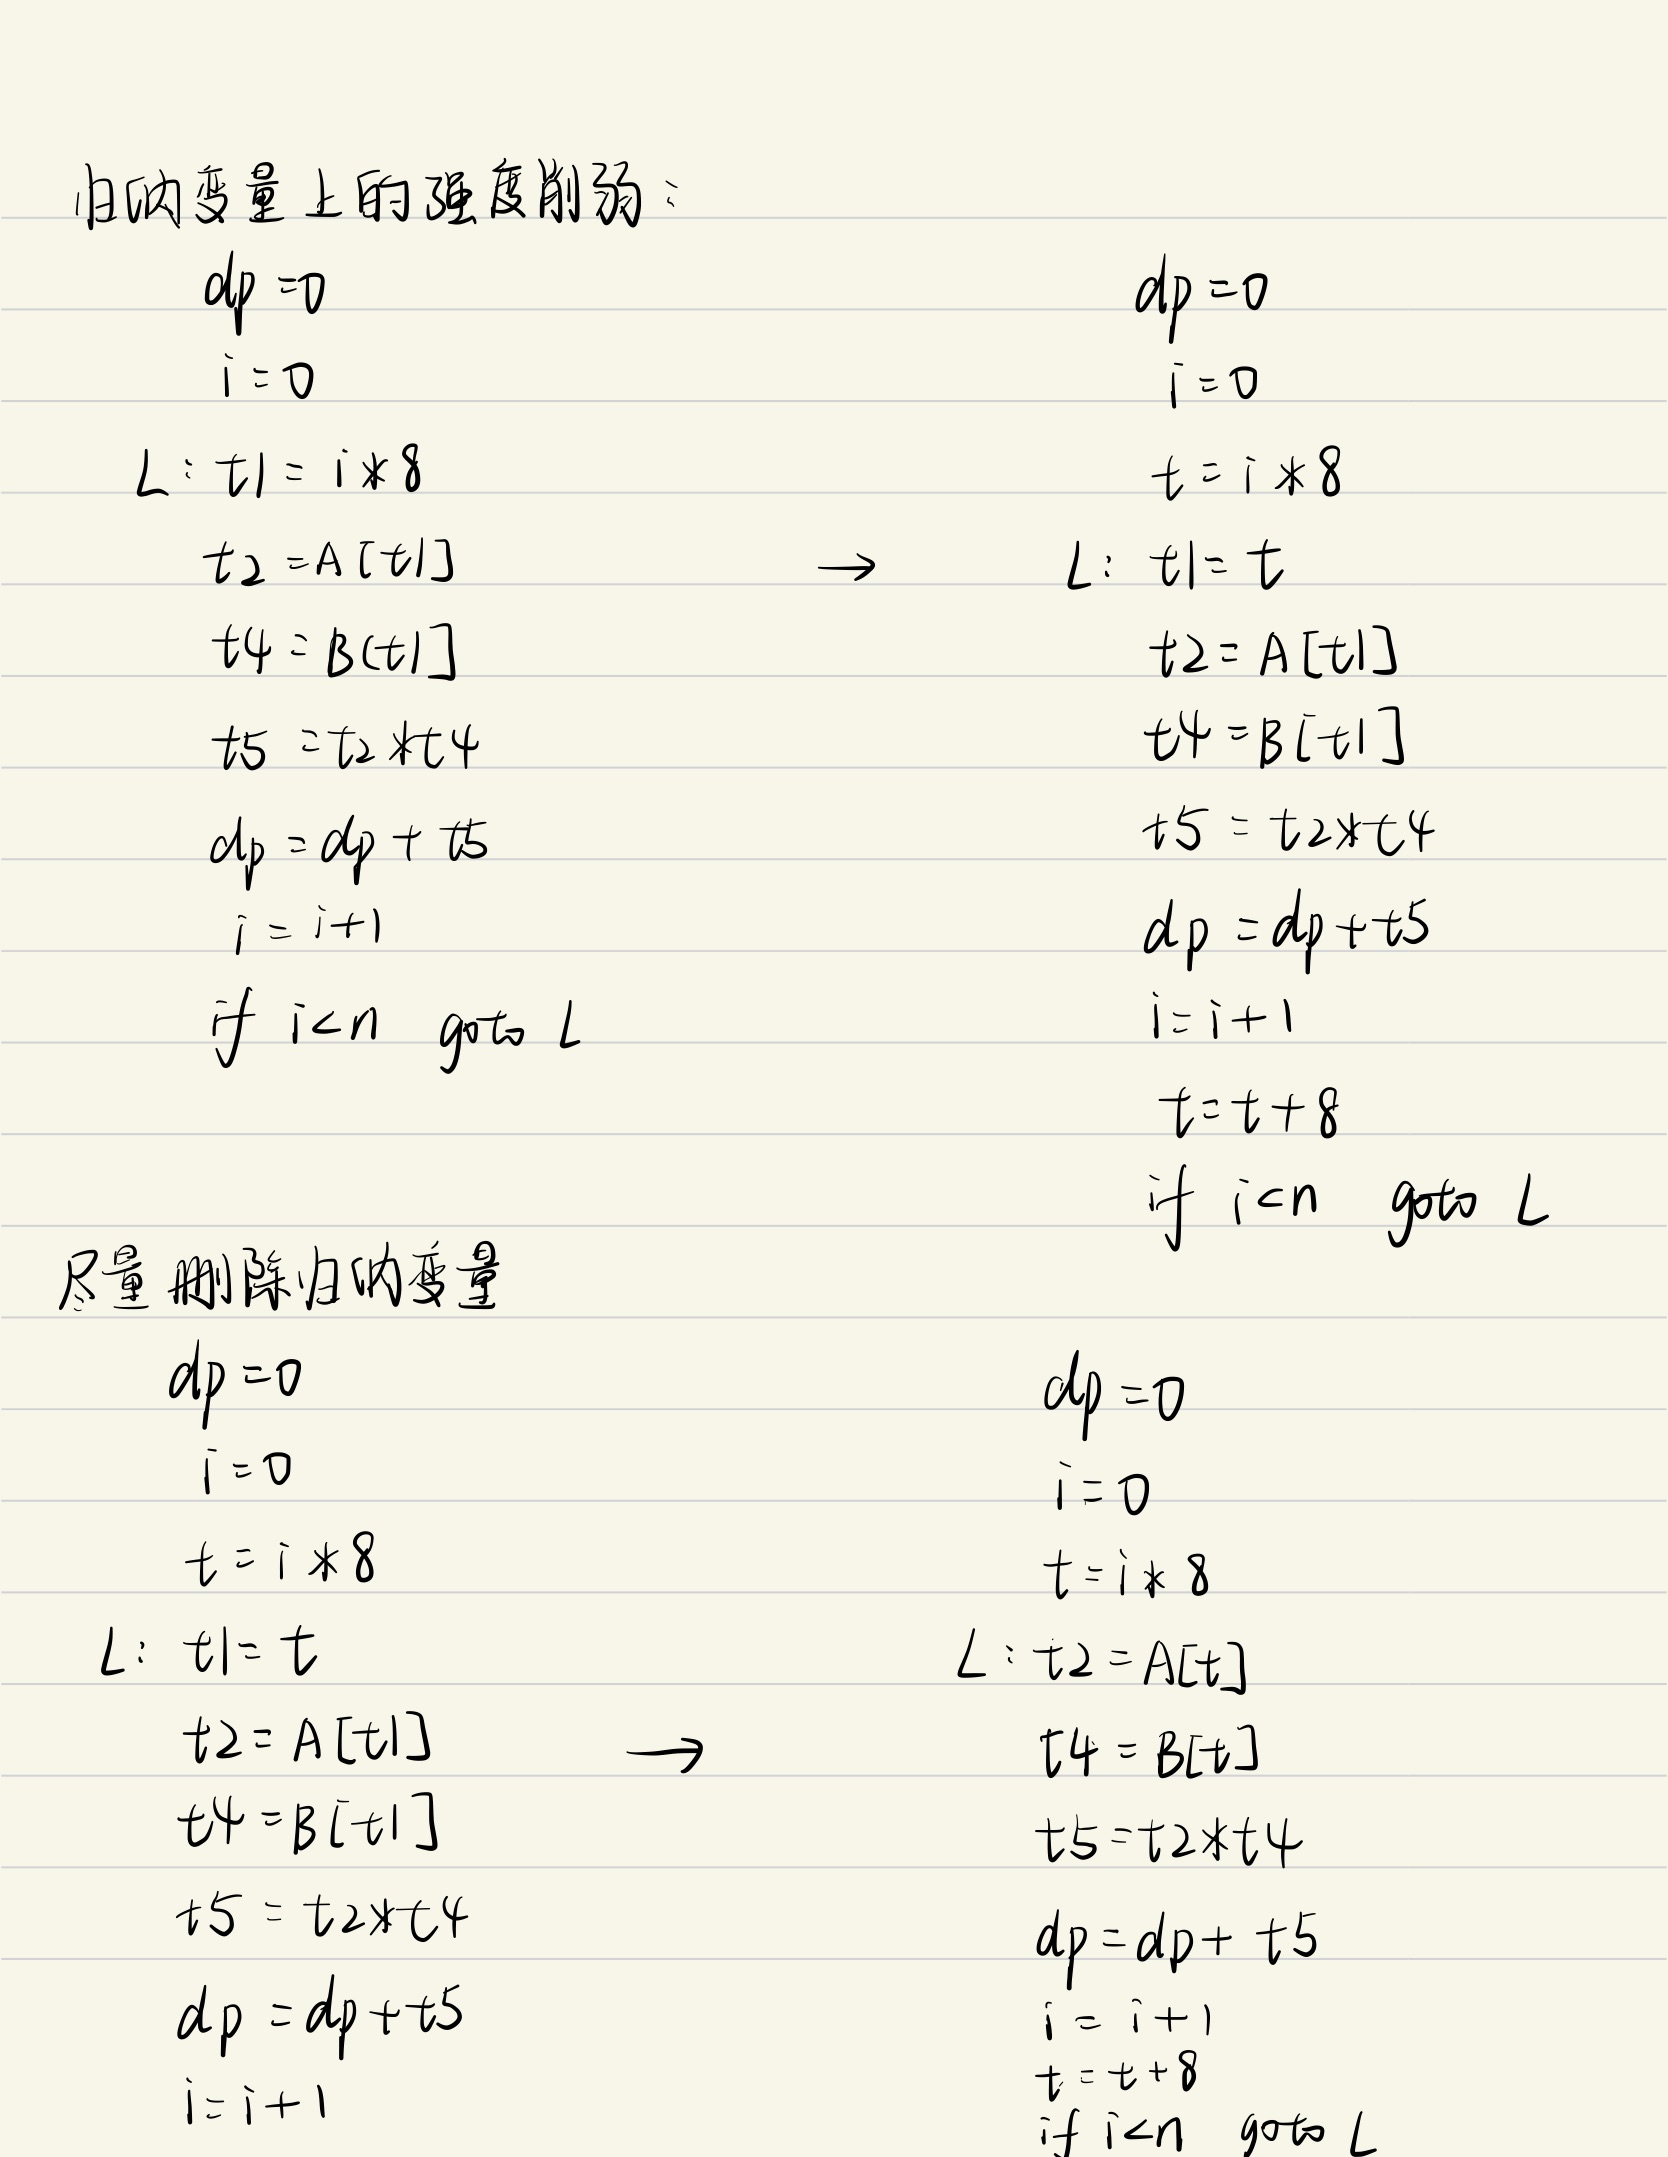 归纳变量上的强度削弱：
dp=0
i=0
L: t1= i*8
t2=A[t1]
t4=B(t1]
t5=t2*t4
dp=dp+t5
i=i+1
if i<n goto L
→
dp=0
i=0
t=i*8
L: t1=t
t2=A[t1]
t4=B[t1]
t5=t2*t4
dp=dp+t5
i=i+1
t=t+8
if i<n goto L
尽量删除归纳变量
dp=0
i=0
t=i*8
L: t1=t
t2=A[t1]
t4=B[t1]
t5=t2*t4
dp=dp+t5
i=i+1
→
dp=0
i=0
t=i*8
L: t2=A[t]
t4=B[t]
t5=t2*t4
dp=dp+t5
i=i+1
t=t+8
if i<n goto L